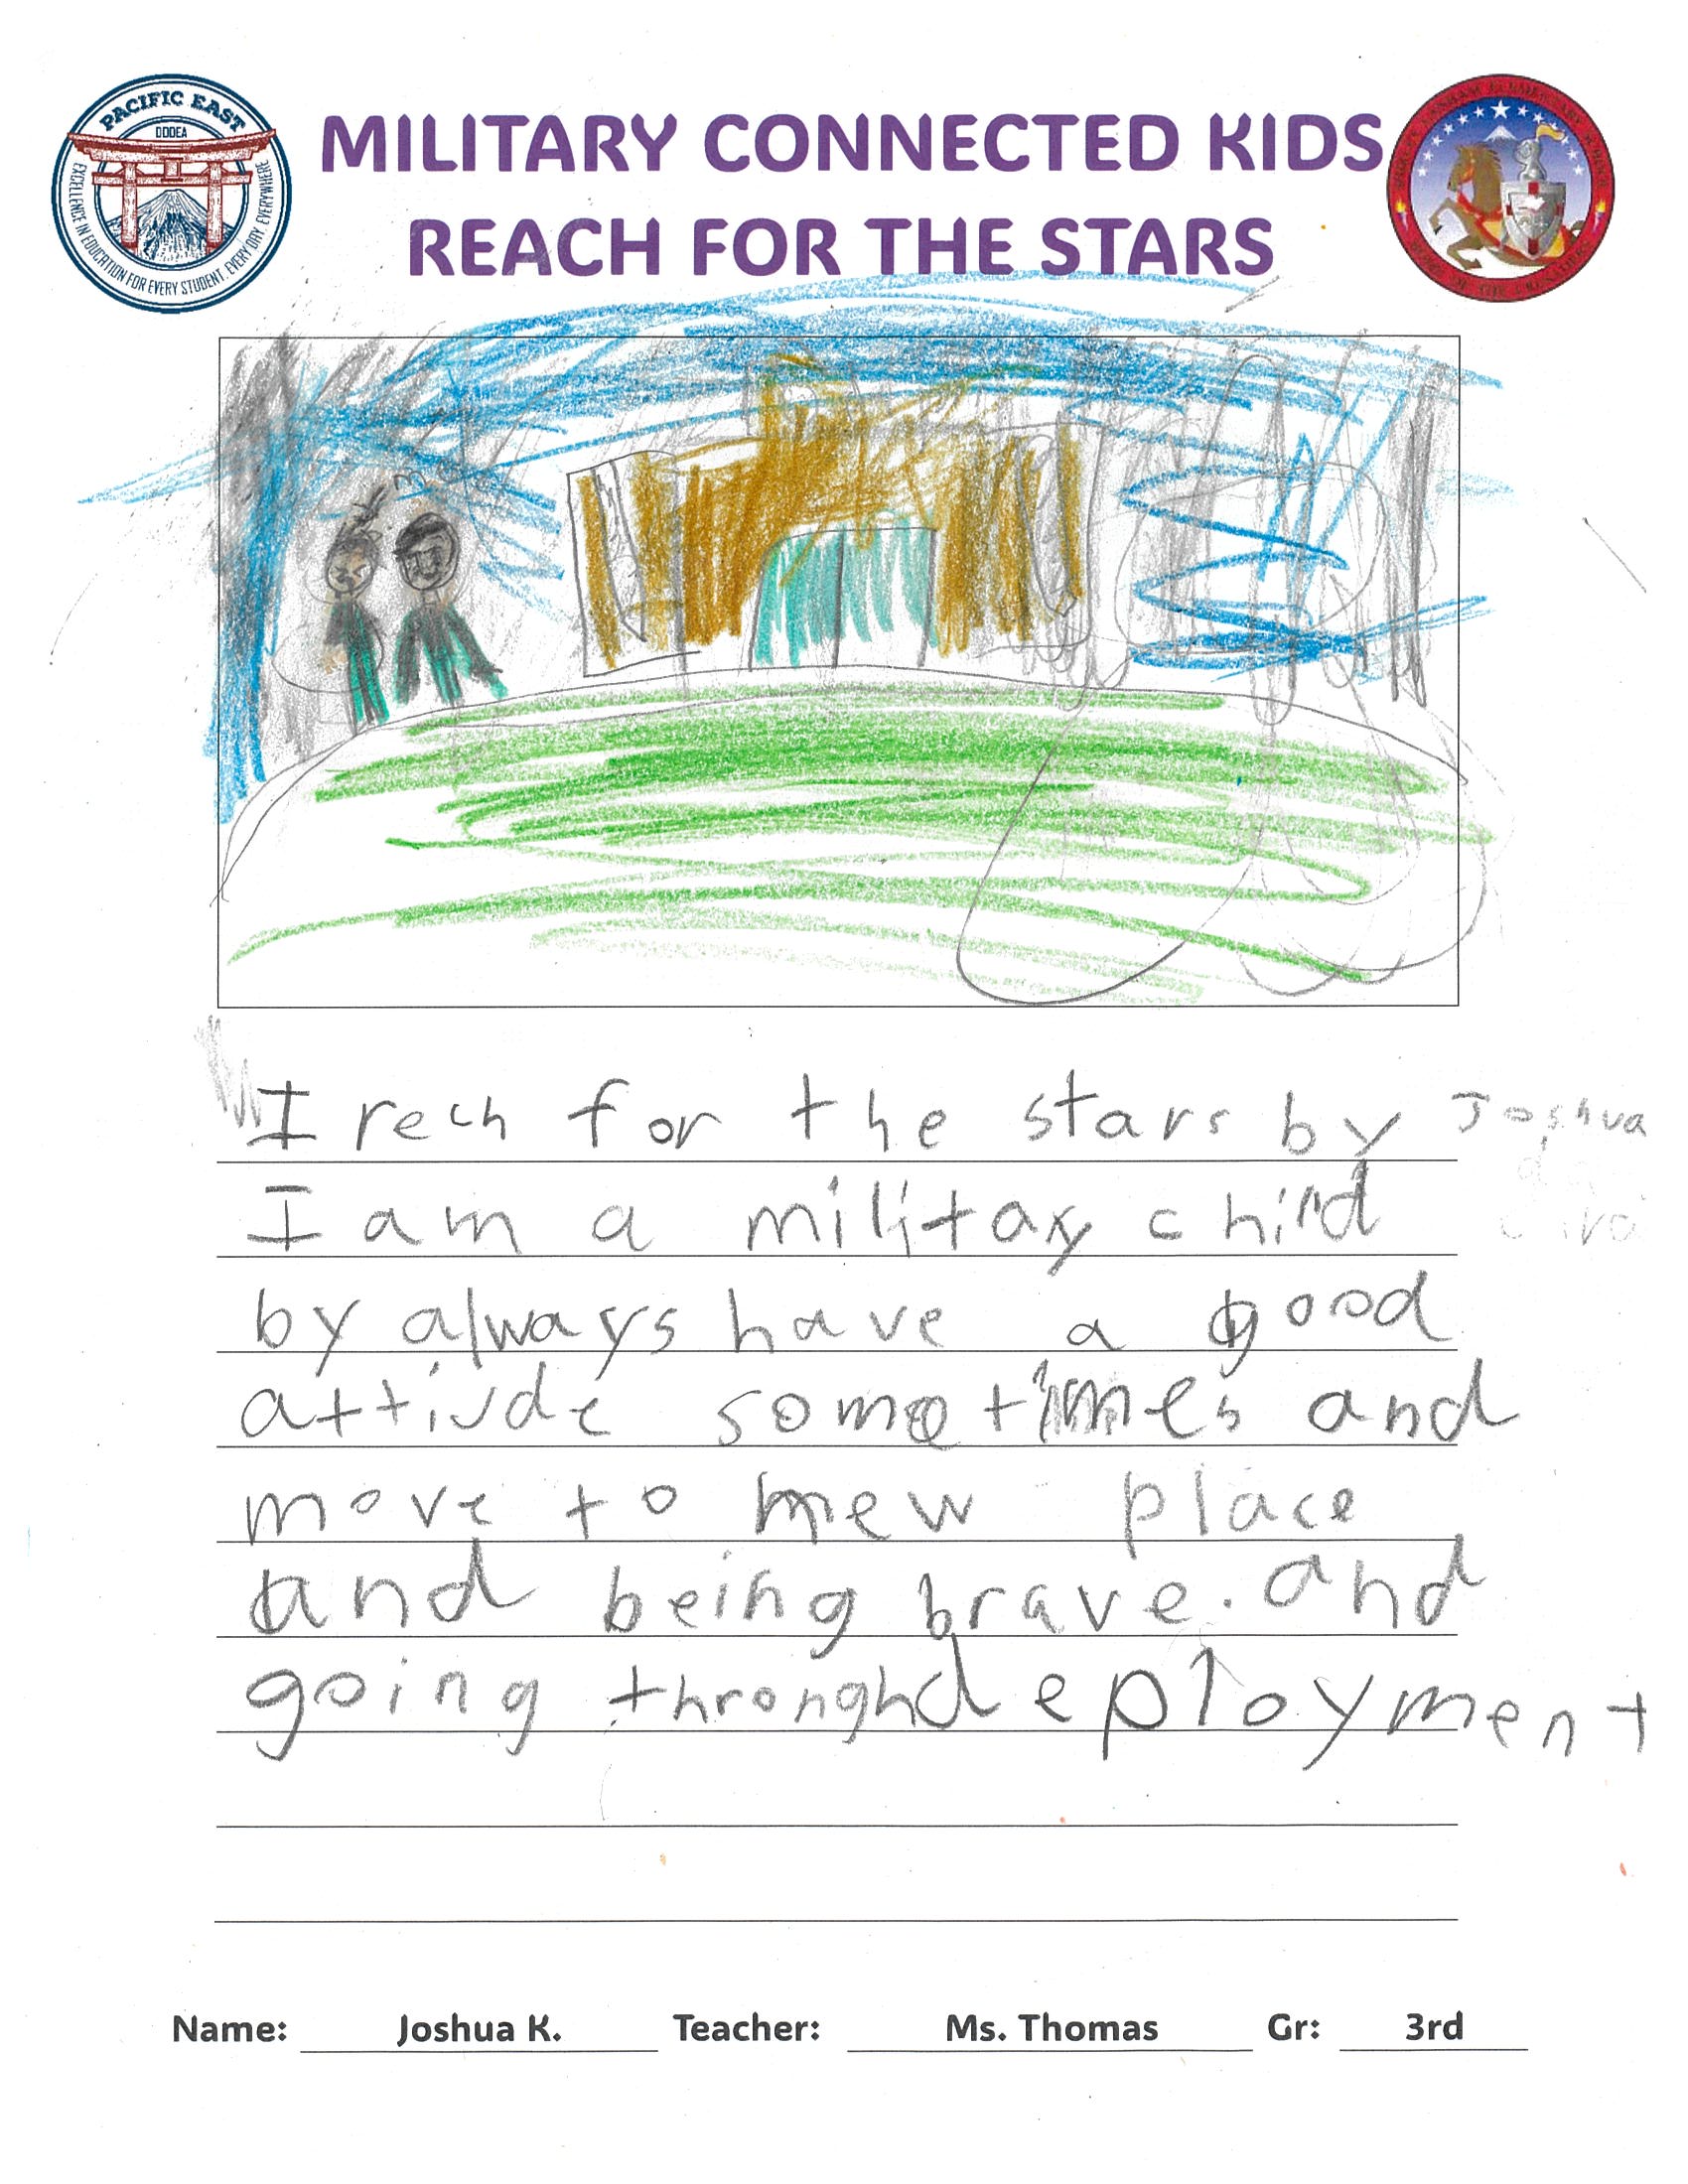 PACIFIC EAST
DODEA
EXCELLENCE IN EDUCATION FOR EVERY STUDENT, EVERY DAY, EVERYWHERE
MILITARY CONNECTED KIDS
REACH FOR THE STARS
I rech for the stars by
Joshua
I am a military child
by always have a good
attiude sometimes and
move to new place
and being brave. and
going throngh deployment
Name: Joshua K. Teacher: Ms. Thomas Gr: 3rd